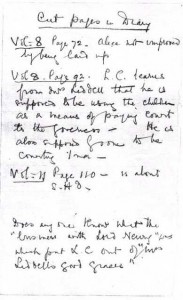 Cut pages in Diary
Vol: 8 Page 72. Alice not improved
by being laid up
Vol 8. Page 92. L.C. learns
from Mrs Liddell that he is
supposed to be using the children
as a means of paying court
to the governess — He is
also supposed soon to be
courting Ina —
Vol: 11 Page 110 — is about
Does any one know what the
"business with Lord Newry" was
which put L.C. out of "Mrs
Liddells good graces"